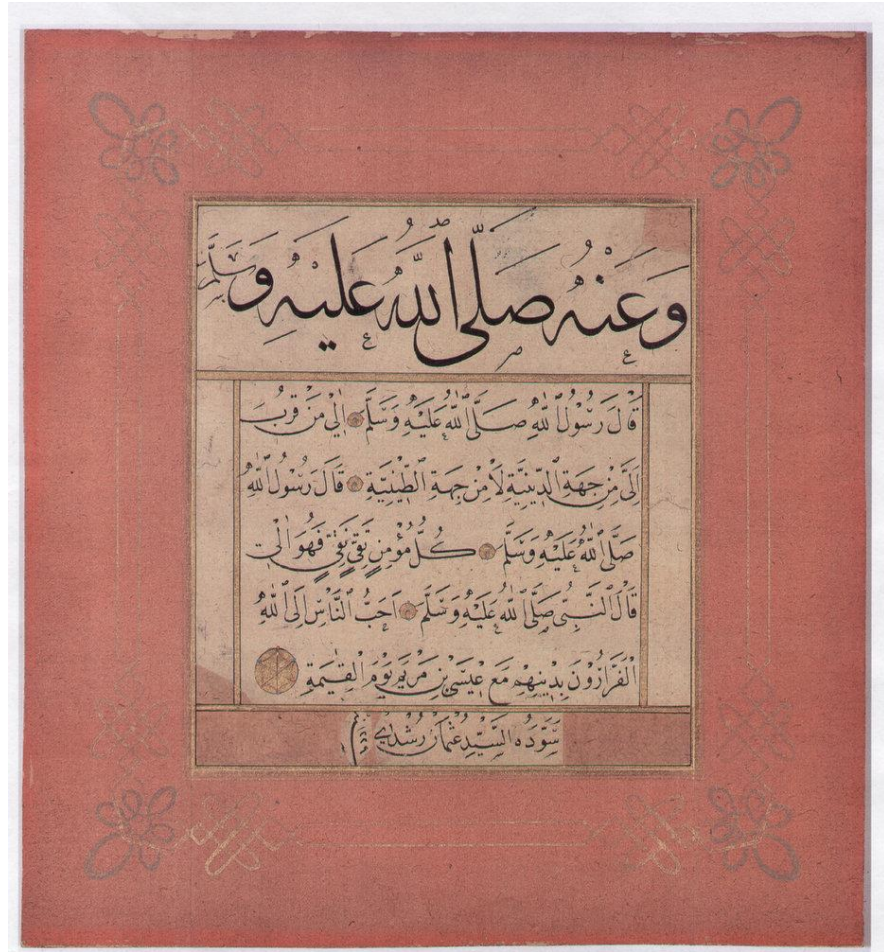 وَعَنْهُ صَلَّى اللّٰهُ عَلَيْهِ وَسَلَّمَ
قَالَ رَسُولُ اللّٰهِ صَلَّى اللّٰهُ عَلَيْهِ وَسَلَّمَ اٰلِي مَنْ قَرُبَ
اِلَيَّ مِنْ جِهَةِ الدِّينِيَّةِ لَا مِنْ جِهَةِ الطِّينِيَّةِ قَالَ رَسُولُ اللّٰهِ
صَلَّى اللّٰهُ عَلَيْهِ وَسَلَّمَ كُلُّ مُؤْمِنٍ تَقِيٍّ نَقِيٍّ فَهُوَ اٰلِي
قَالَ النَّبِيُّ صَلَّى اللّٰهُ عَلَيْهِ وَسَلَّمَ اَحَبُّ النَّاسِ اِلَى اللّٰهِ
الْفَرَّارُونَ بِدِينِهِمْ مَعَ عِيسَى بْنِ مَرْيَمَ يَوْمَ الْقِيٰمَةِ
سَوَّدَهُ السَّيِّدُ عُثْمَانُ رُشْدِي